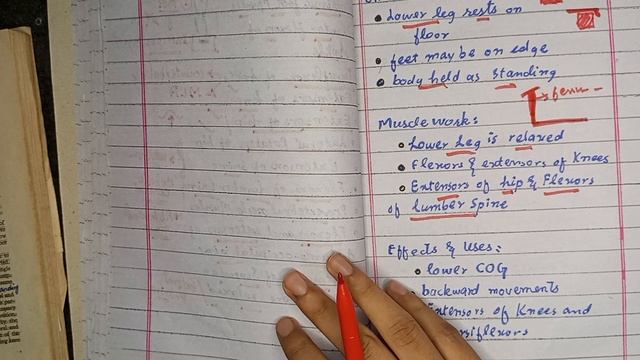 • Lower leg rests on
floor
• feet may be on edge
• body held as standing
Muscle work:
• Lower Leg is relaxed
• Flexors & extensors of Knees
• Extensors of hip & Flexors
of lumbar Spine
Effects & Uses:
• lower COG
backward movements
Extensors of Knees and